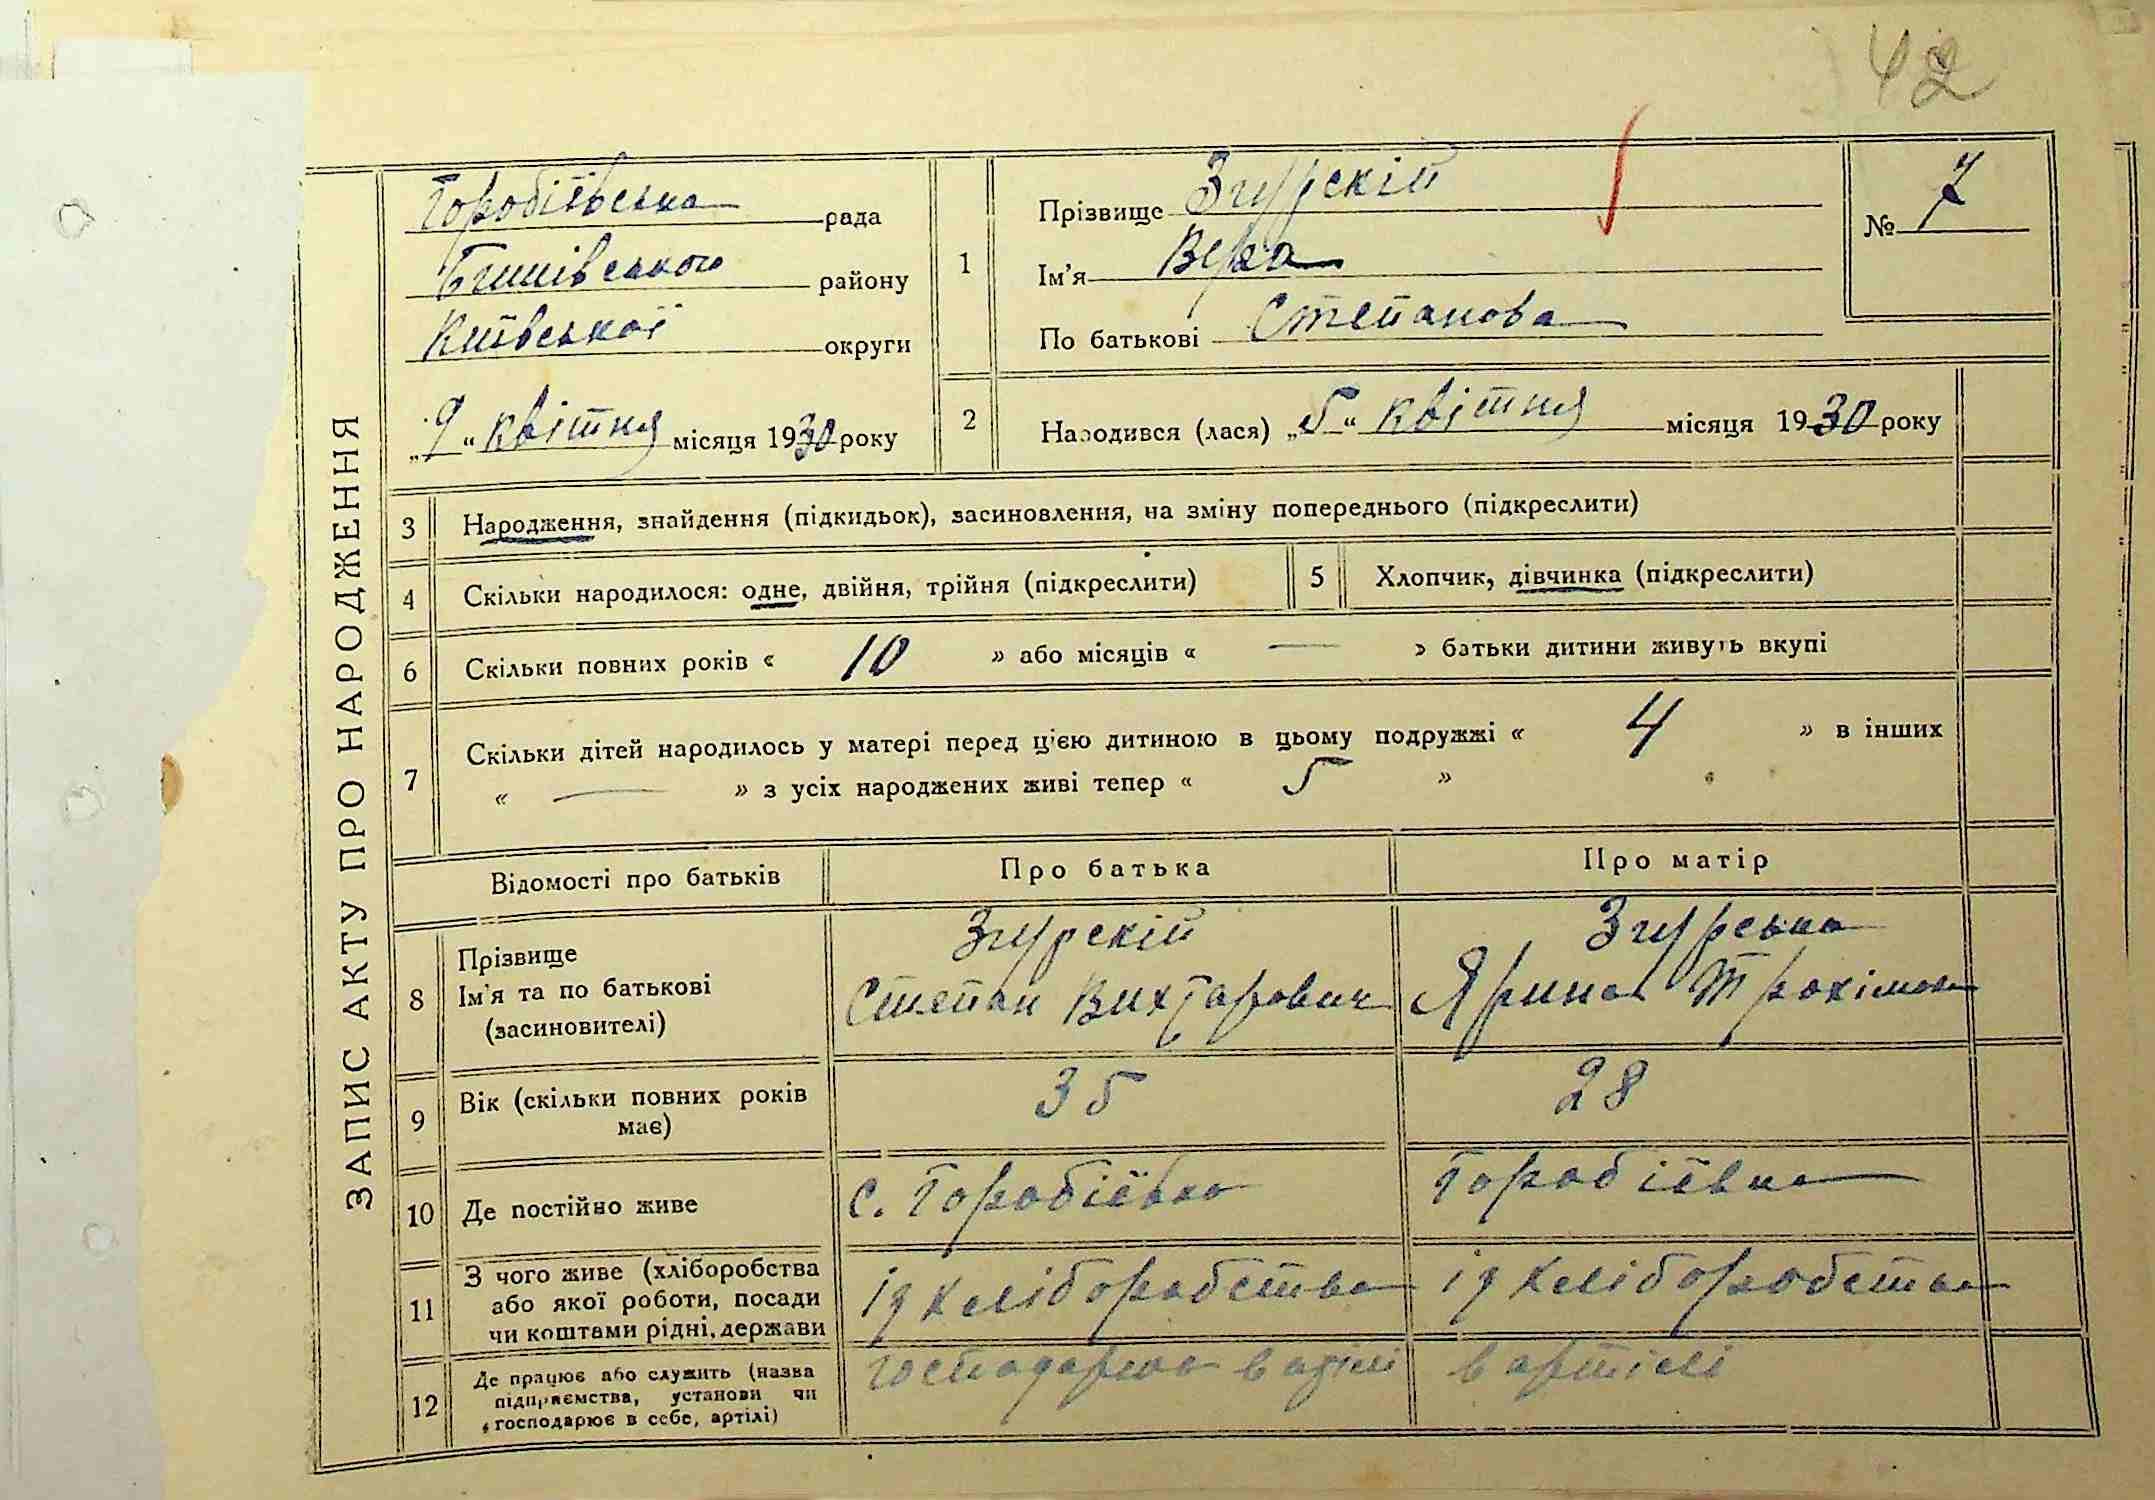 42
ЗАПИС АКТУ ПРО НАРОДЖЕННЯ
Горобіївська рада
Бишівського району
Київської округи
„9“ квітня місяця 1930 року
1
Прізвище Згурскій
Ім'я Вера
По батькові Степанова
№ 7
2 Народився (лася) „5“ квітня місяця 1930 року
3 Народження, знайдення (підкидьок), засиновлення, на зміну попереднього (підкреслити)
4 Скільки народилося: одне, двійня, трійня (підкреслити) 5 Хлопчик, дівчинка (підкреслити)
6 Скільки повних років « 10 » або місяців « — » батьки дитини живуть вкупі
7 Скільки дітей народилось у матері перед цією дитиною в цьому подружжі « 4 » в інших
« — » з усіх народжених живі тепер « 5 »
Відомості про батьків Про батька Про матір
8 Прізвище
Ім'я та по батькові
(засиновителі)
Згурскій
Степан Вихтарович
Згурська
Ярина Трохімова
9 Вік (скільки повних років
має)
35 28
10 Де постійно живе с. Горобіївка Горобіївка
11 З чого живе (хліборобства
або якої роботи, посади
чи коштами рідні, держави
ід хліборобства ід хліборобства
12 Де працює або служить (назва
підприємства, установи чи
господарює в себе, артілі)
господарює в в артілі